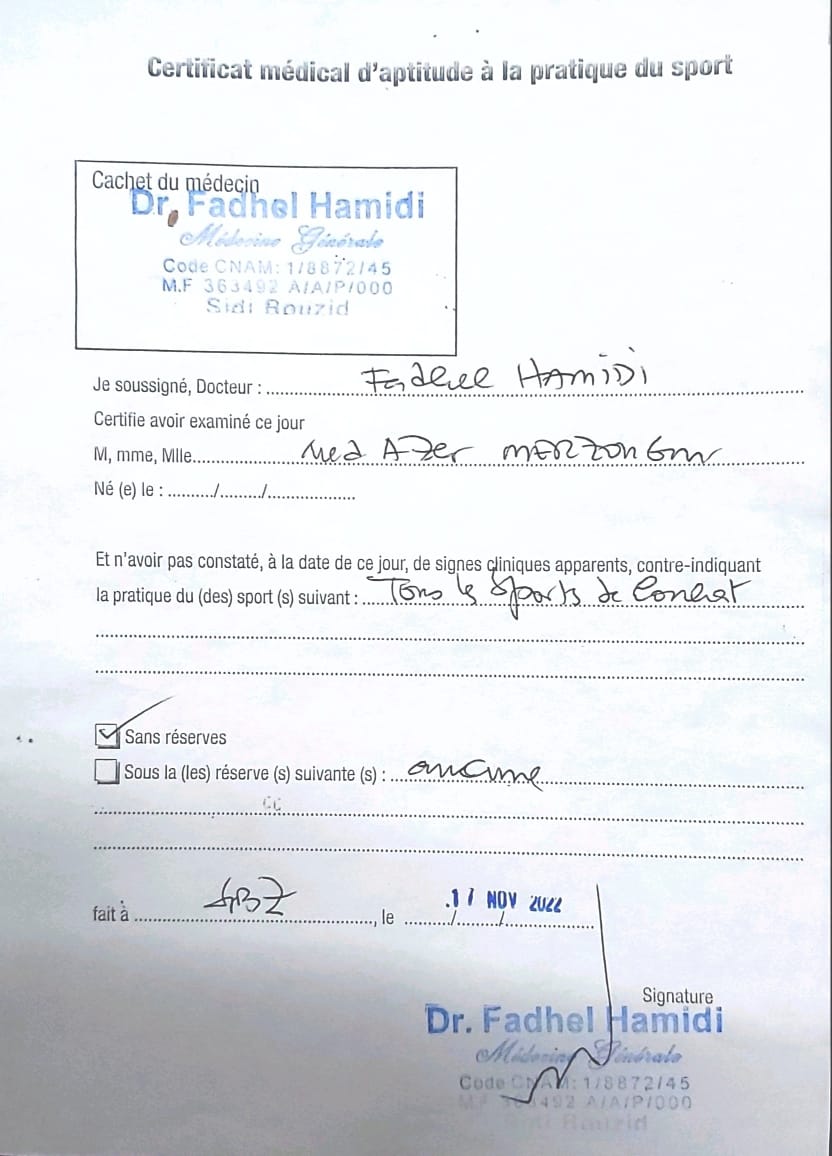 Certificat médical d'aptitude à la pratique du sport
Cachet du médecin
Dr. Fadhel Hamidi
Médecine Générale
Code CNAM: 1/8872/45
M.F 363492 A/A/P/000
Sidi Bouzid
Je soussigné, Docteur : Fadhel HAMIDI
Certifie avoir examiné ce jour
M, mme, Mlle Med AZer
Né (e) le : ......../......../..................
Et n'avoir pas constaté, à la date de ce jour, de signes cliniques apparents, contre-indiquant
la pratique du (des) sport (s) suivant : Tous les Sports de Combat
Sans réserves
Sous la (les) réserve (s) suivante (s) : aucune
fait à SBZ, le 17 NOV 2022
Signature
Dr. Fadhel Hamidi
Médecine Générale
Code CNAM: 1/8872/45
M.F 363492 A/A/P/000
Sidi Bouzid